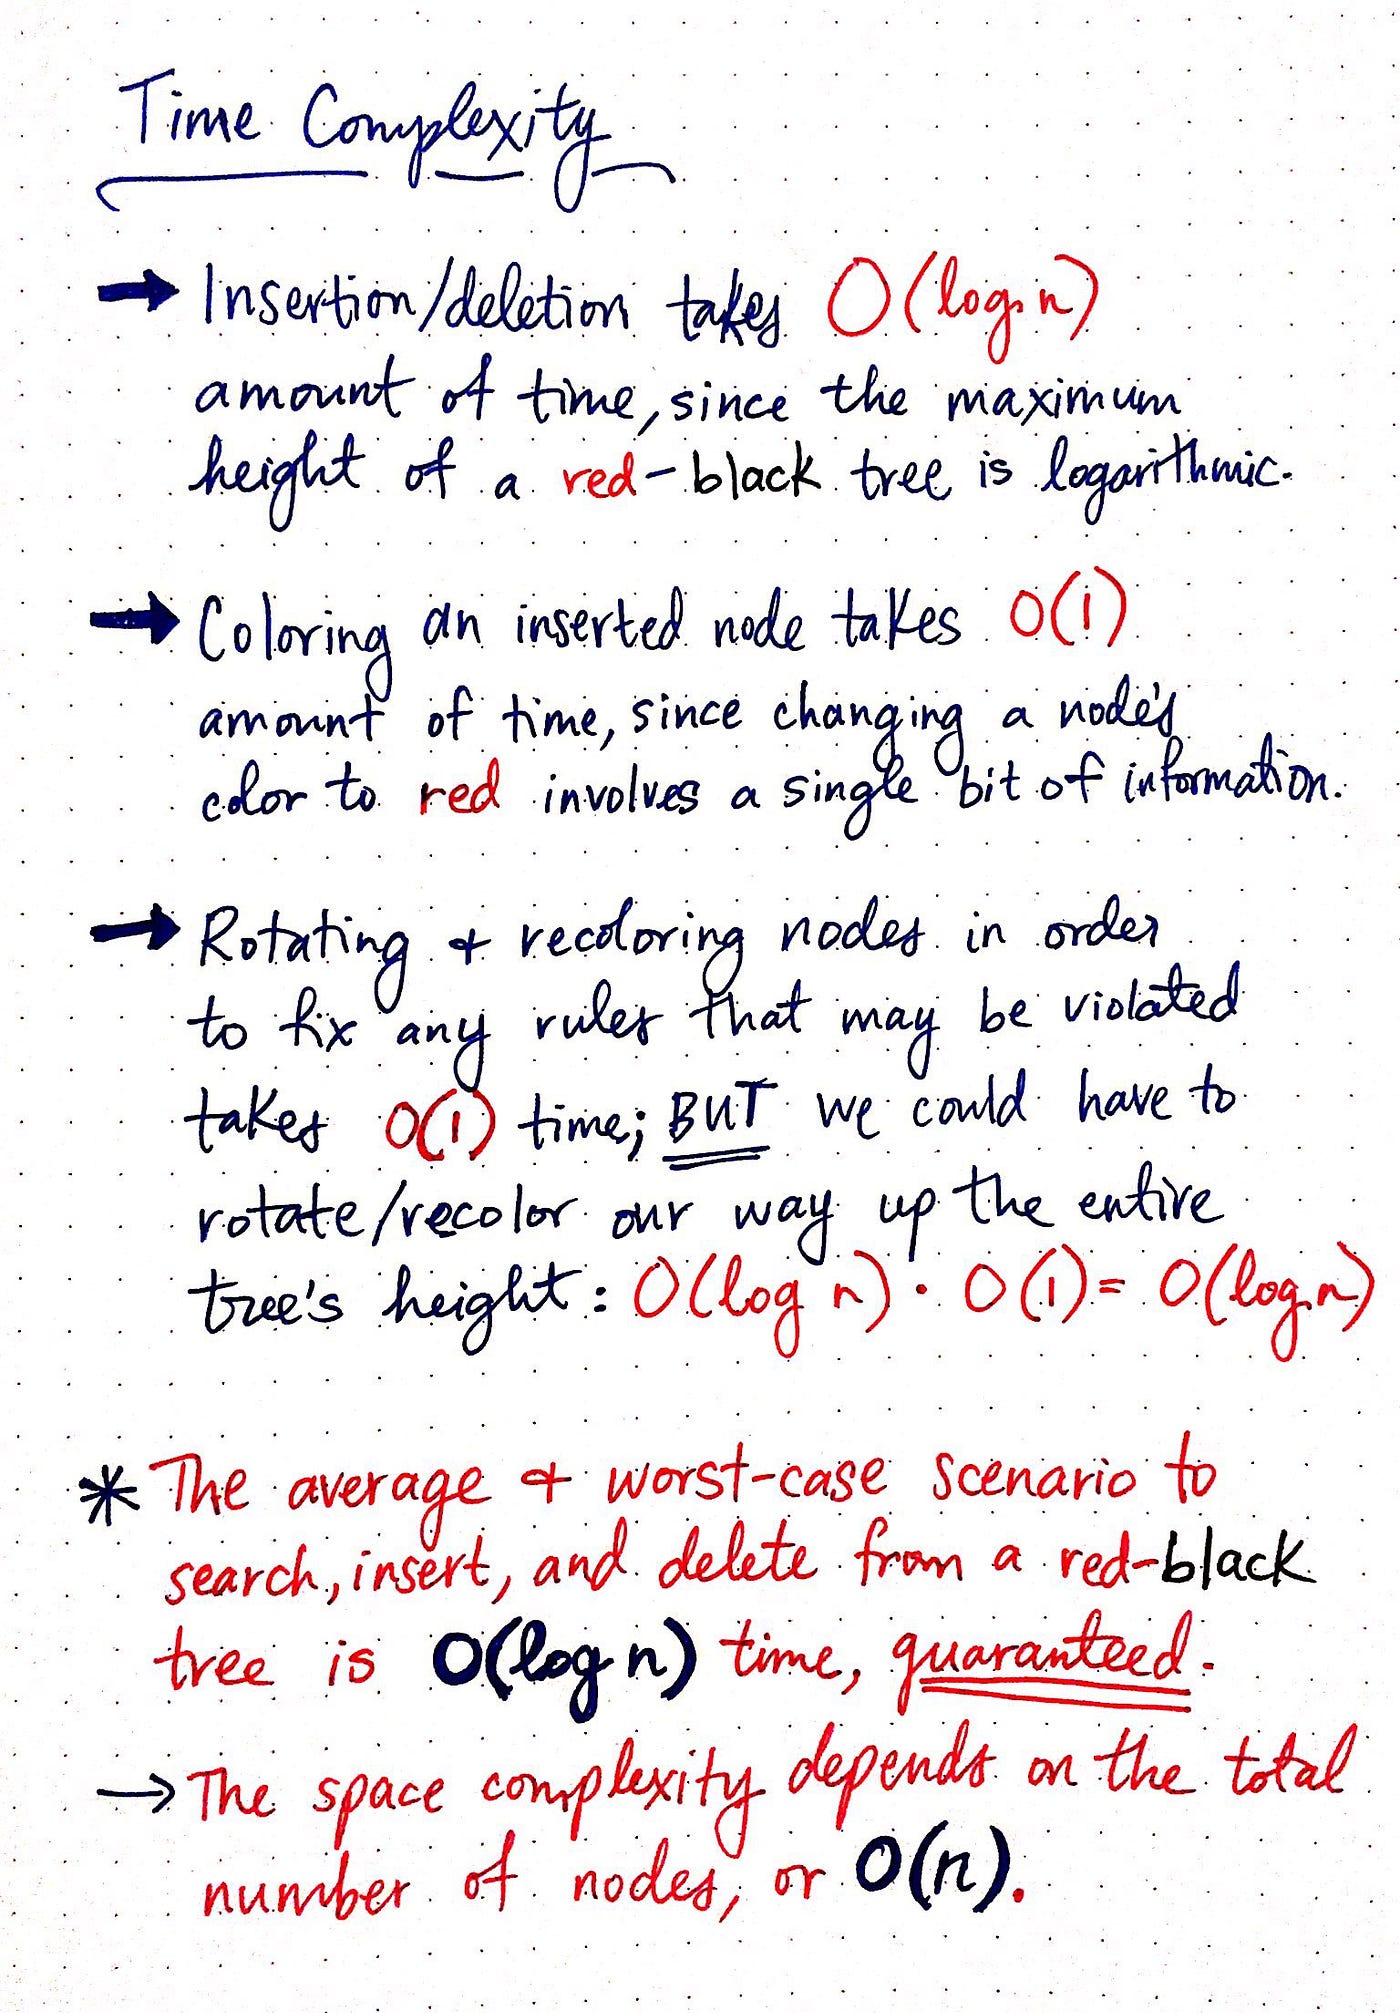 Time Complexity
→ Insertion/deletion takes O(log n)
amount of time, since the maximum
height of a red-black tree is logarithmic.
→ Coloring an inserted node takes O(1)
amount of time, since changing a node's
color to red involves a single bit of information.
→ Rotating + recoloring nodes in order
to fix any rules that may be violated
takes O(1) time; BUT we could have to
rotate/recolor our way up the entire
tree's height: O(log n) · O(1) = O(log n)
* The average + worst-case scenario to
search, insert, and delete from a red-black
tree is O(log n) time, guaranteed.
→ The space complexity depends on the total
number of nodes, or O(n).